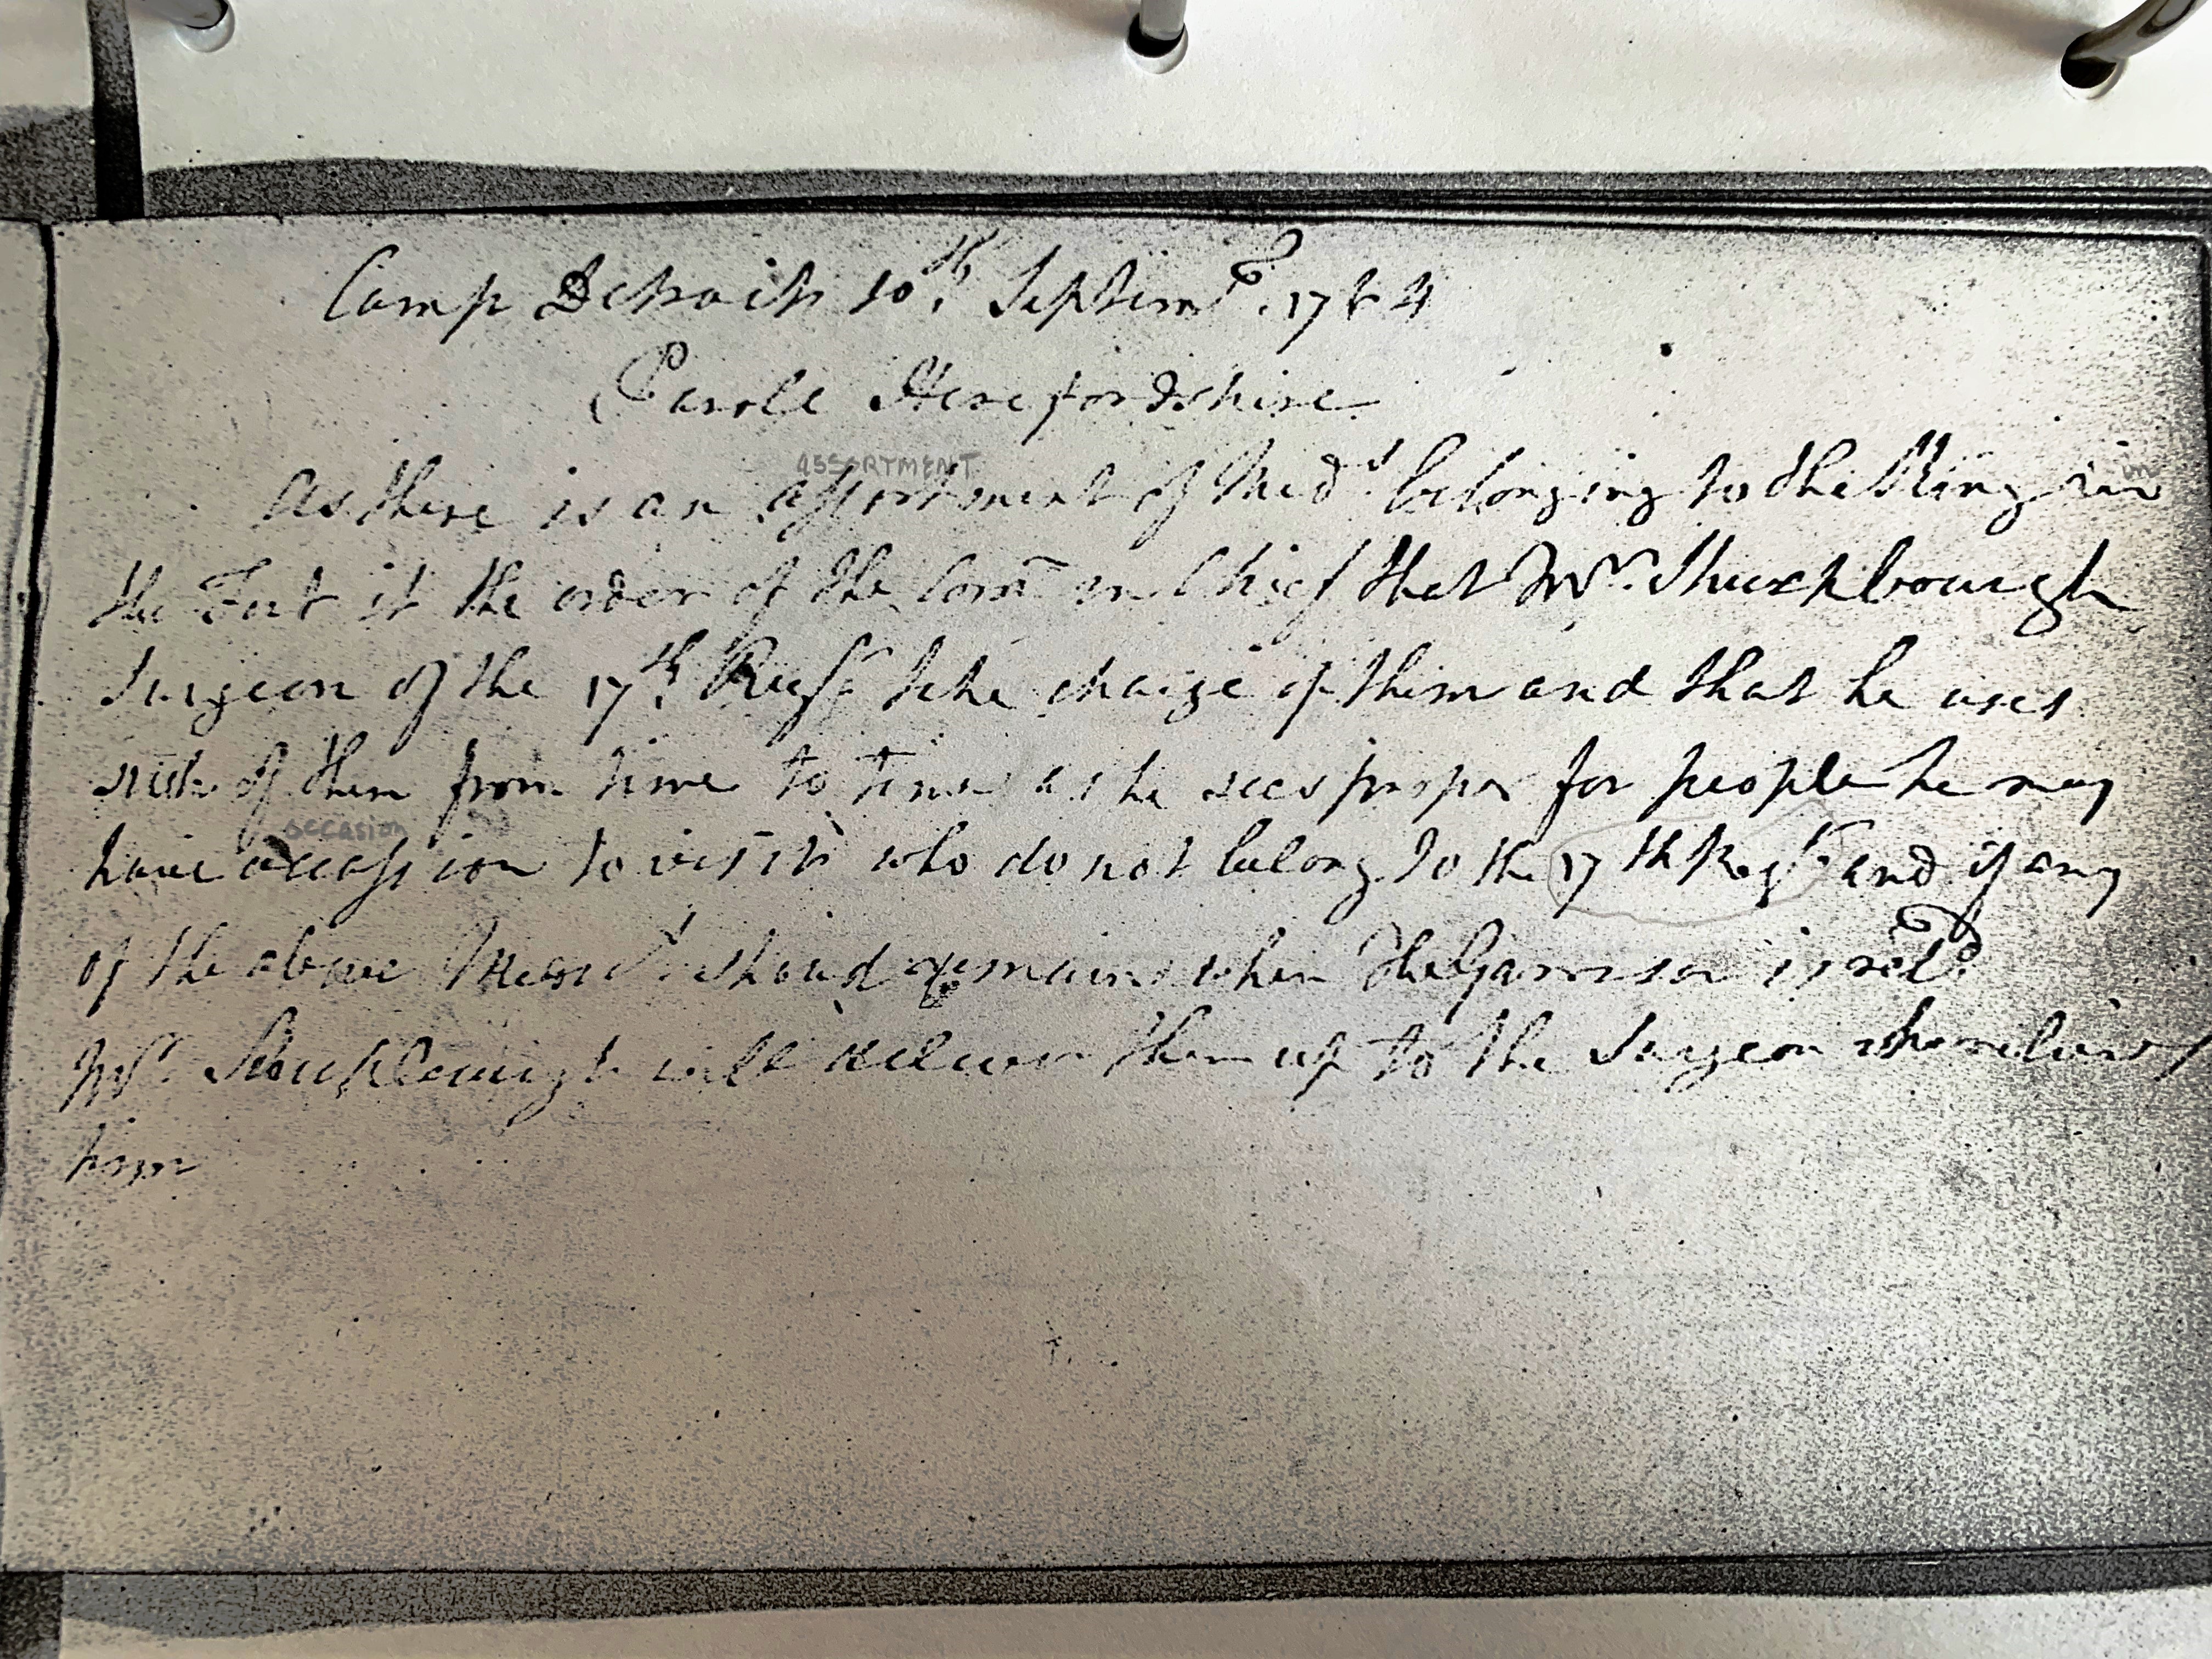 Camp Detroit 10th. Septemr. 1764
Parole Herefordshire
ASSORTMENT
As there is an assortment of Meds. belonging to the King in
the Fort it the order of the Comr in Chief that Mr. Shuckbourgh
Surgeon of the 17th. Regt take charge of them and that he uses
such of them from time to time as he sees proper for people he may
occasion
have occassion to visit who do not belong to the 17th Regt. and if any
of the above Meds. should remain when the Garrison is reld.
Mr. will deliver them up to the Surgeon who relieves
him